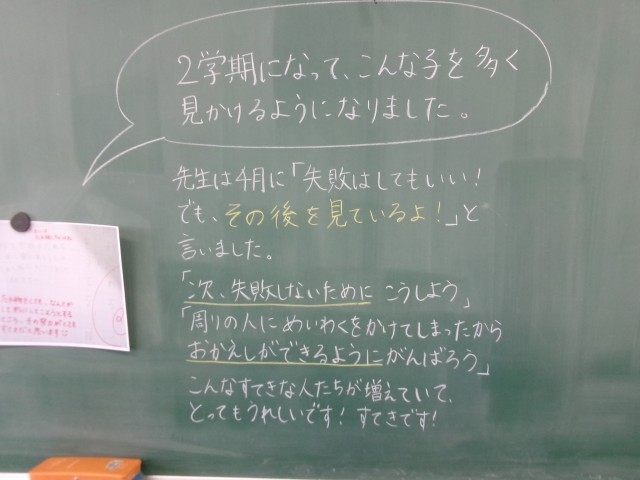 2学期になって、こんな子を多く
見かけるようになりました。
先生は4月に「失敗はしてもいい!
でも、その後を見ているよ!」と
言いました。
「次、失敗しないために こうしよう」
「周りの人にめいわくをかけてしまったから
おかえしができるようにがんばろう」
こんなすてきな人たちが増えていて、
とってもうれしいです! すてきです!